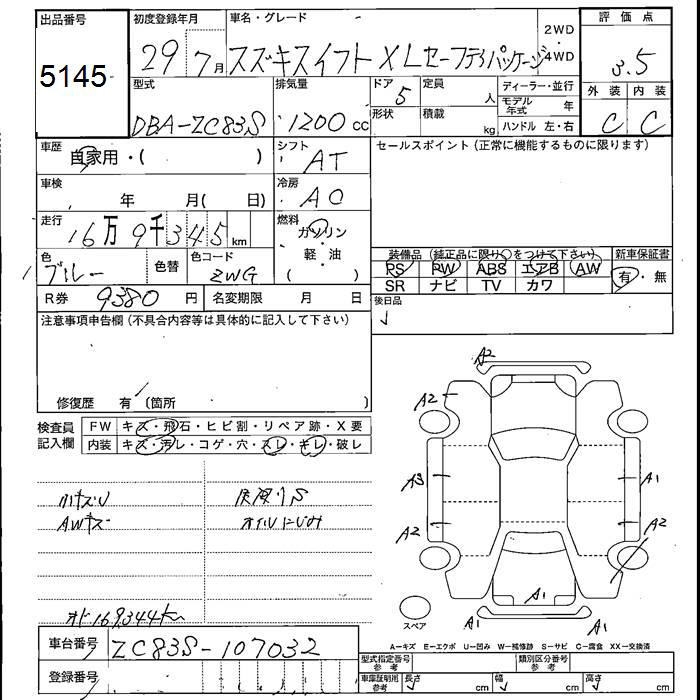 出品番号 初度登録年月 車名・グレード 2WD ・ 4WD 評価点
5145 29 7月 スズキスイフト XLセーフティパッケージ 3.5
型式 排気量 ドア 定員 ディーラー・並行 外装 内装
DBA-ZC83S 1200 cc 5 人 モデル年式 年 C C
形状 積載 kg ハンドル 左・右
車歴 自家用・( ) シフト AT セールスポイント (正常に機能するものに限ります)
車検 年 月( 日) 冷房 AC
走行 16万9千345 km 燃料 ガソリン・軽油 ( )
色 ブルー 色替 色コード ZWG
装備品 (純正品に限り○をつけて下さい) 新車保証書
PS PW ABS エアB AW 有・無
SR ナビ TV カワ
R券 9380 円 名変期限 月 日 後日品
注意事項申告欄 (不具合内容等は具体的に記入して下さい)
修復歴 有 (箇所 )
検査員記入欄 FW キズ・飛石・ヒビ割・リペア跡・X要
内装 キズ・汚レ・コゲ・穴・スレ・キレ・破レ
A2
A2
小キズU
AWキズ オイルにじみ
A3 A1
A2 A2
A1
A1 A1
オド169344km
スペア
車台番号 ZC83S-107032
A-キズ E-エクボ U-凹み W-補修跡 S-サビ C-腐食 XX-交換済
型式指定番号 参考 類別区分番号 参考
登録番号 車庫証明用 参考 長さ cm 幅 cm 高さ cm